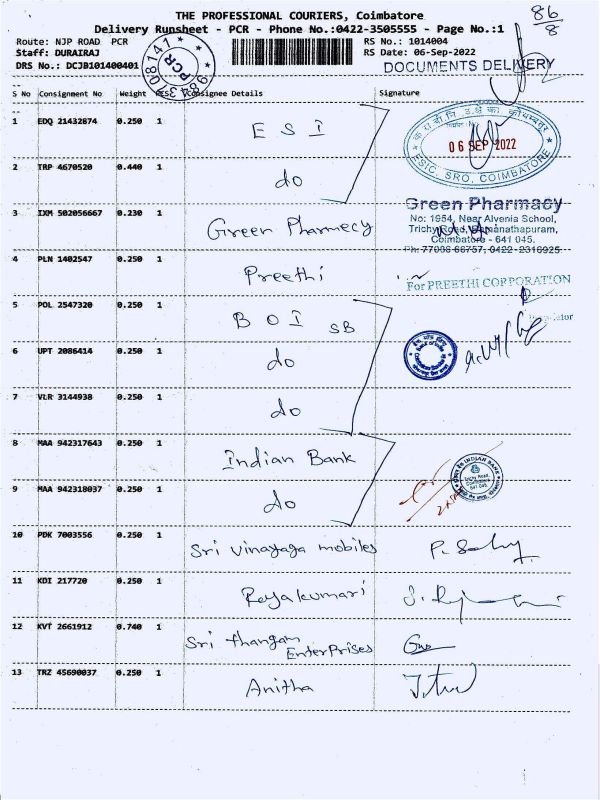 THE PROFESSIONAL COURIERS, Coimbatore
Delivery Runsheet - PCR - Phone No.:0422-3505555 - Page No.:1
86
8
Route: NJP ROAD PCR
RS No.: 1014004
Staff: DURAIRAJ
RS Date: 06-Sep-2022
DRS No.: DCJB101400401
DOCUMENTS DELIVERY
PCR
S No Consignment No Weight PCS Consignee Details Signature
1 EDQ 21432874 0.250 1 E S I
06 SEP 2022
ESIC, SRO, COIMBATORE
2 TRP 4670520 0.440 1 do
3 IXM 502056667 0.230 1 Green Pharmecy
Green Pharmacy
No: 1954, Near Alvenia School,
Trichy Road, Ramanathapuram,
Coimbatore - 641 045.
4 PLN 1402547 0.250 1 Preethi
For PREETHI CORPORATION
5 POL 2547320 0.250 1 B O I SB
6 UPT 2086414 0.250 1 do
7 VLR 3144938 0.250 1 do
8 MAA 942317643 0.250 1 Indian Bank
INDIAN BANK
Trichy Road,
Coimbatore
641 045.
9 MAA 942318037 0.250 1 do
10 PDK 7003556 0.250 1 Sri vinayaga mobiles
11 KDI 217720 0.250 1
12 KVT 2661912 0.740 1 Sri thangam
Enterprises
13 TRZ 45690037 0.250 1 Anitha